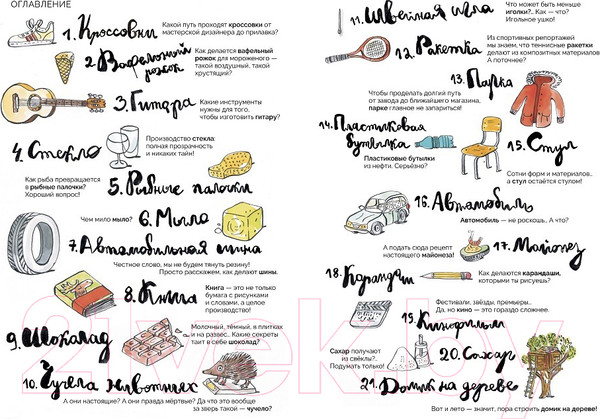 ОГЛАВЛЕНИЕ
1. Кроссовки
Какой путь проходят кроссовки от
мастерской дизайнера до прилавка?
2. Вафельный
рожок
Как делается вафельный
рожок для мороженого —
такой воздушный, такой
хрустящий?
3. Гитара
Какие инструменты
нужны для того,
чтобы изготовить гитару?
4. Стекло
Производство стекла:
полная прозрачность
и никаких тайн!
Как рыба превращается
в рыбные палочки?
Хороший вопрос!
5. Рыбные палочки
Чем мило мыло?
6. Мыло
7. Автомобильная шина
Честное слово, мы не будем тянуть резину!
Просто расскажем, как делают шины.
8. Книга
Книга — это не только
бумага с рисунками
и словами, а целое
производство!
9. Шоколад
Молочный, тёмный, в плитках
и на развес. Какие секреты
таит в себе шоколад?
10. Чучела животных
А они настоящие? А они правда мёртвые? Да что это вообще
за зверь такой — чучело?
11. Швейная игла
Что может быть меньше
иголки?.. Как — что?
Игольное ушко!
12. Ракетка
Из спортивных репортажей
мы знаем, что теннисные ракетки
делают из композитных материалов
А поточнее?
13. Парка
Чтобы проделать долгий путь
от завода до ближайшего магазина,
парке главное не запариться!
14. Пластиковая
бутылка
Пластиковые бутылки
из нефти. Серьёзно?
15. Стул
Сотни форм и материалов,
а стул остаётся стулом!
16. Автомобиль
Автомобиль — не роскошь. А что?
А подать сюда рецепт
настоящего майонеза!
17. Майонез
18. Карандаш
Как делаются карандаши,
которыми ты рисуешь?
Фестивали, звёзды, премьеры..
Да, но кино — это гораздо сложнее.
19. Кинофильм
Сахар получают
из свёклы?..
Подумать только!
20. Сахар
21. Домик на дереве
Вот и лето — значит, пора строить домик на дереве!
21vek.by